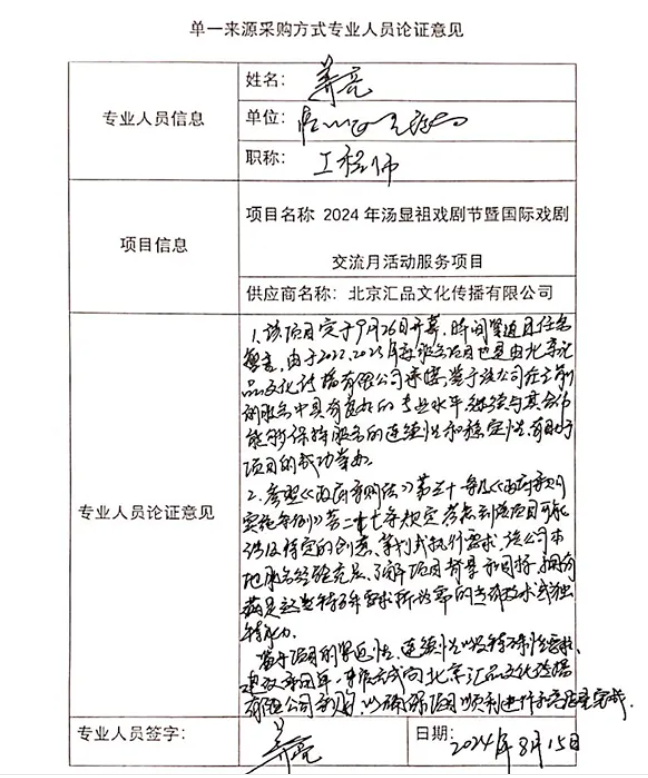 单一来源采购方式专业人员论证意见
专业人员信息
姓名：
单位：
职称： 工程师
项目信息
项目名称 2024 年汤显祖戏剧节暨国际戏剧
交流月活动服务项目
供应商名称：北京汇品文化传播有限公司
专业人员论证意见
1.该项目定于9月26日开幕，时间紧迫且任务
由于2022、2023年度服务项目也是由北京汇
品文化传播有限公司承接，鉴于该公司在
服务中具有良好的专业水平，继续与其合作
能够保持服务的连续性和稳定性，有助于
项目的成功举办。
2.参照《政府采购法》第三十一条及《政府采购
实施条例》第二十七条规定，考虑到该项目可能
涉及特定的创意、策划或执行要求，该公司本
地服务经验充足、了解项目背景和目标，拥有
满足这些特殊需求所必需的专有技术或独
特能力。
鉴于项目的紧迫性、连续性以及特殊性要求，
建议采用单一来源方式向北京汇品文化传播
有限公司采购，以确保项目顺利进行和高质量完成。
专业人员签字：
日期： 2024年8月15日